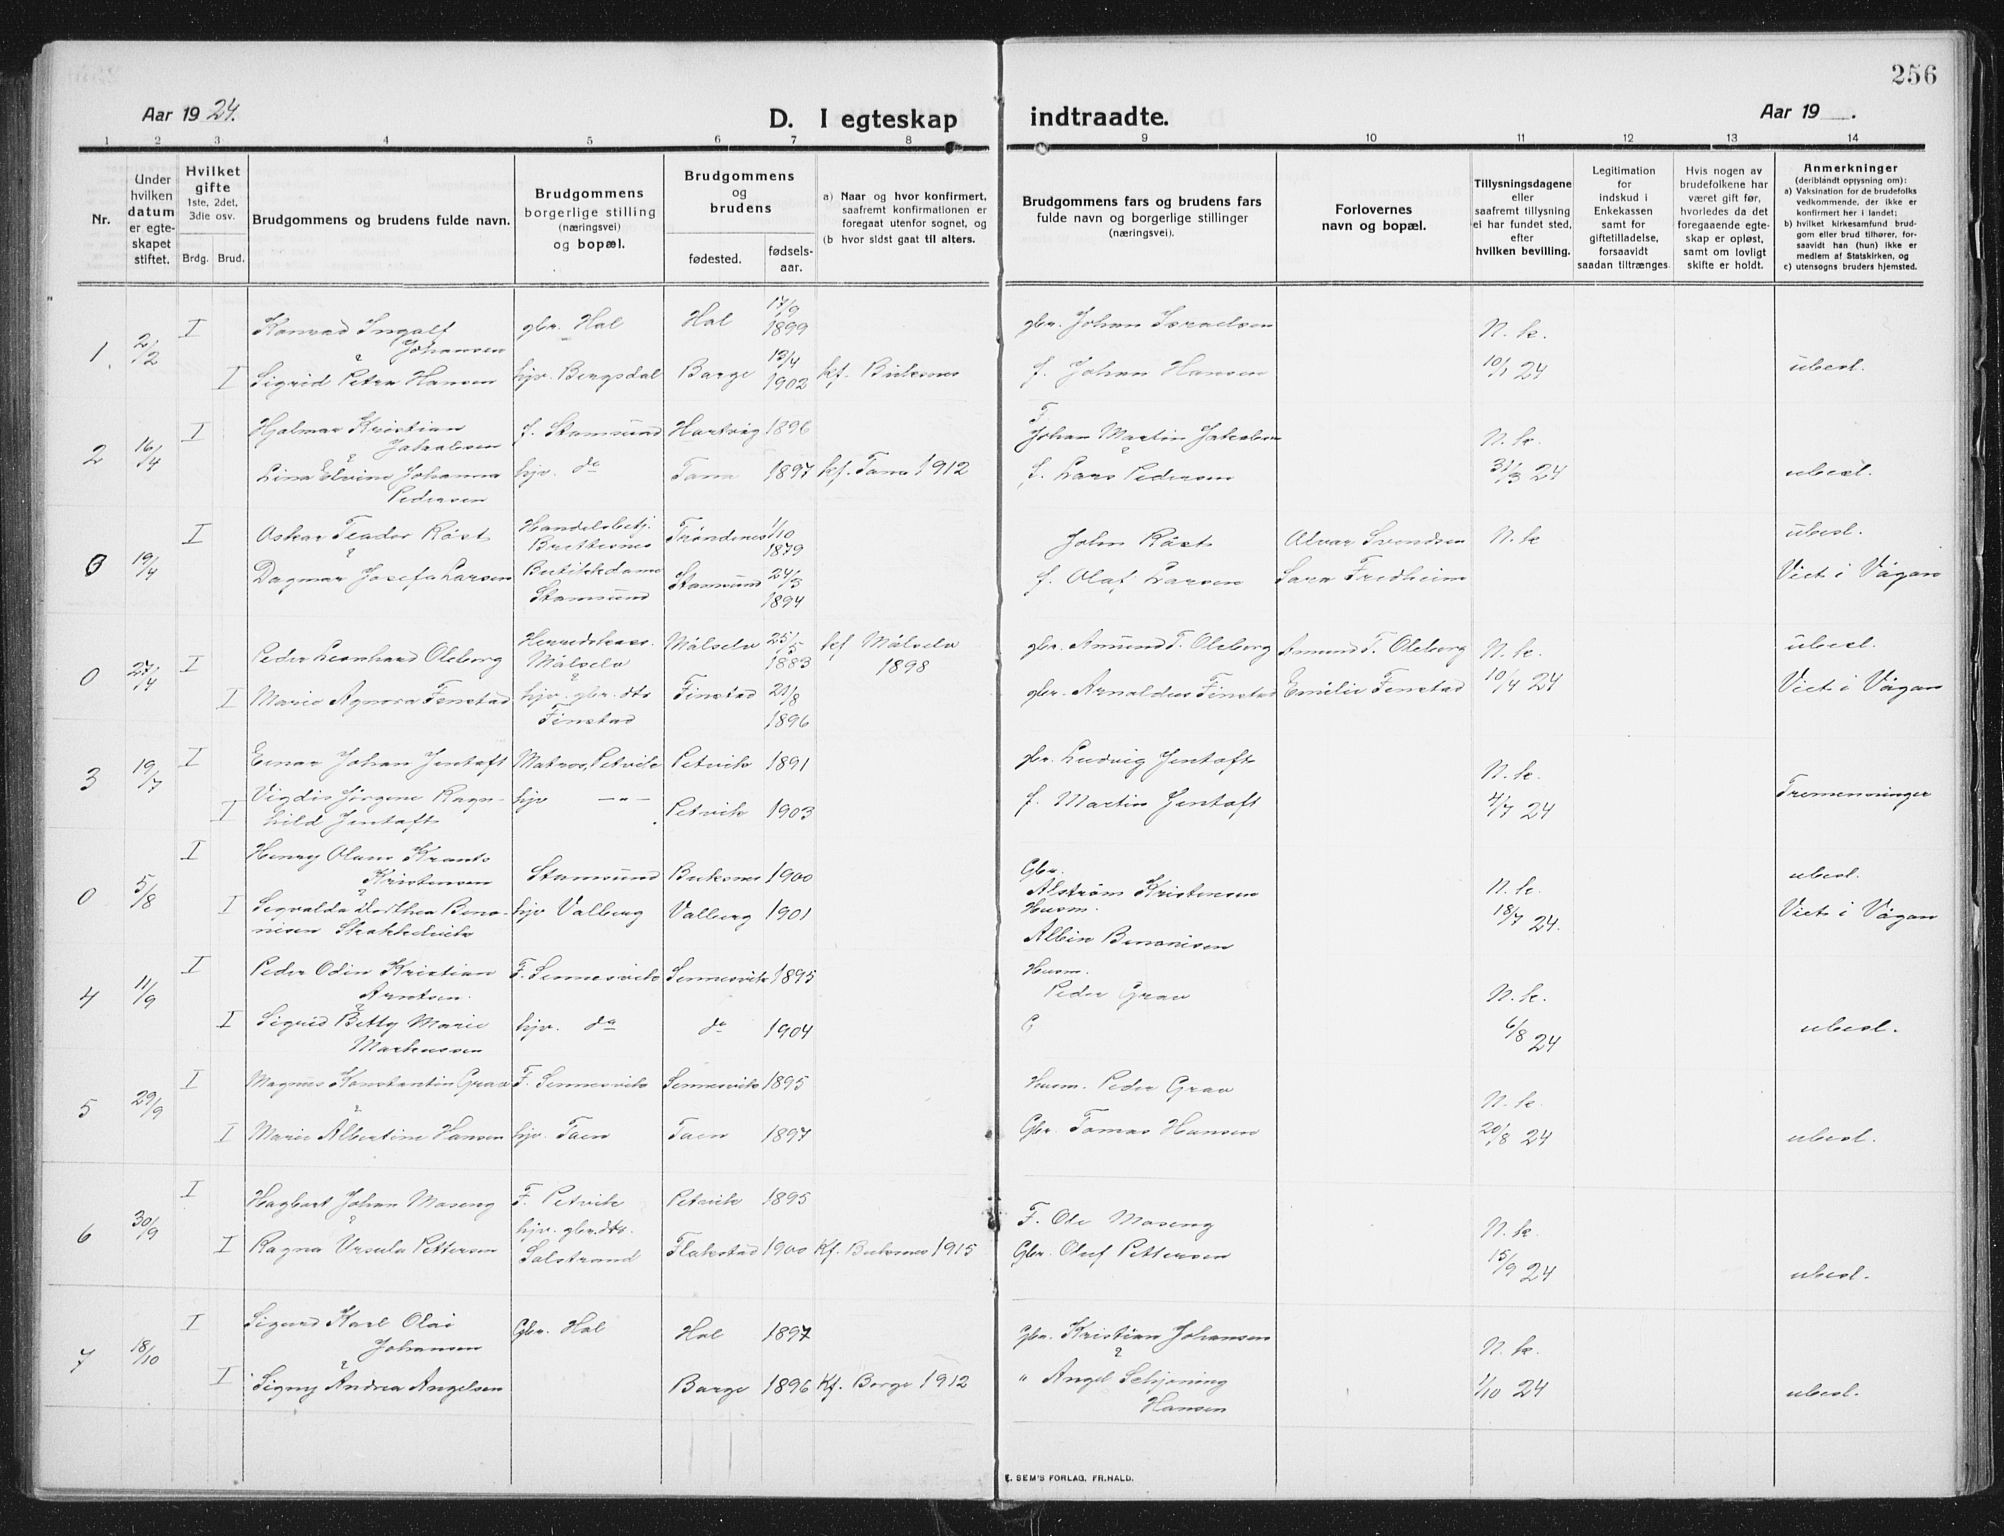 256
Aar 1924.
D. I egteskap indtraadte.
Aar 19 .
1 2 3 4 5 6 7 8 9 10 11 12 13 14
Nr.
Under hvilken datum er egteskapet stiftet.
Hvilket gifte 1ste, 2det, 3die osv.
Brdg. Brud.
Brudgommens og brudens fulde navn.
Brudgommens borgerlige stilling (næringsvei) og bopæl.
Brudgommens og brudens
fødested.
fødsels-aar.
a) Naar og hvor konfirmert, saafremt konfirmationen er foregaat utenfor sognet, og
(b hvor sidst gaat til alters.
Brudgommens fars og brudens fars fulde navn og borgerlige stillinger (næringsvei).
Forlovernes navn og bopæl.
Tillysningsdagene eller saafremt tillysning ei har fundet sted, efter hvilken bevilling.
Legitimation for indskud i Enkekassen samt for giftetilladelse, forsaavidt saadan tiltrænges
Hvis nogen av brudefolkene har været gift før, hvorledes da det foregaaende egteskap er opløst, samt om lovligt skifte er holdt.
Anmerkninger (deriblandt oplysning om):
a) Vaksination for de brudefolks vedkommende, der ikke er konfirmert her i landet;
b) hvilket kirkesamfund brudgom eller brud tilhører, forsaavidt han (hun) ikke er medlem av Statskirken, og
c) utensogns bruders hjemsted.
1 2/2 I Konrad Ingolf Johansen gbr. Hol Hol 17/9 1899 gbr. Johan Israelsen N. k.
I Sigrid Petra Hansen hjv. Bergsdal Borge 13/4 1902 kf. Buksnes f. Johan Hansen 10/1 24 ubesl.
2 16/4 I Hjalmar Kristian Jakobsen f. Stamsund Hartvig 1896 F. Johan Martin Jakobsen N. k.
Lina Elvine Johanna Pedersen hjv. do Tana 1897 kf. Tana 1912 f. Lars Pedersen 31/3 24 ubesl.
0 19/4 I Oskar Teodor Röst Handelsbetj. Brettesnes Trondenes 1/10 1879 John Röst Alvar Svendsen N. k ubesl.
Dagmar Josefa Larsen Butikkdame Stamsund Stamsund 24/3 1894 f. Olaf Larsen Sara Fredheim Viet i Vågan
0 27/4 I Peder Leonhard Olsborg Herredskass. Målselv Målselv 25/5 1883 kf Målselv 1898 gbr. Amund T. Olsborg Amund T. Olsborg N. k. ubesl.
I Marie Agnora Finstad hjv. gbr. dtr Finstad Finstad 21/8 1896 gbr. Arnoldus Finstad Emilie Finstad 10/4 24 Viet i Vågan
3 19/7 I Einar Johan Jentoft Matros, Petvik Petvik 1891 gbr. Ludvig Jentoft N. k.
I Vigdis Jörgene Ragnhild Jentoft hjv —"— Petvik 1903 f. Martin Jentoft 4/7 24 Tremenninger
0 5/8 I Henry Olaus Krants Kristensen Stamsund Buksnes 1900 Gbr. Alström Kristensen N. k. ubesl.
I Segvalda Dorthea Benonisen Skokkelvik hjv Valberg Valberg 1901 Husm. Albin Benonisen 18/7 24. Viet i Vågan
4 11/9 I Peder Odin Kristian Arntsen F. Sennesvik Sennesvik 1895 Husm. Peder Grav N. k.
I Sigrid Betty Marie Markussen hjv. do do 1904 6/8 24 ubesl.
5 29/9 I Magnus Konstantin Grav F. Sennesvik Sennesvik 1895 Husm. Peder Grav N. k.
I Marie Albertine Hansen hjv. Taen Taen 1897 Gbr. Tomas Hansen 20/8 24 ubesl.
6 30/9 I Hagbart Johan Moseng F. Petvik Petvik 1895 F. Ole Moseng N. k.
I Ragna Ursula Pettersen hjv. gbr.dtr. Solstrand Flakstad 1900 Kf. Buksnes 1915 Gbr. Oluf Pettersen 15/9 24 ubesl.
7 18/10 I Sigurd Karl Olai Johansen Gbr. Hol Hol 1897 Gbr. Kristian Johansen N. k.
I Signy Andrea Angelsen Borge 1896 Kf. Borge 1912 " Angel Schjöning Hansen 1/10 24 ubesl.
E. SEM'S FORLAG, FR.HALD.